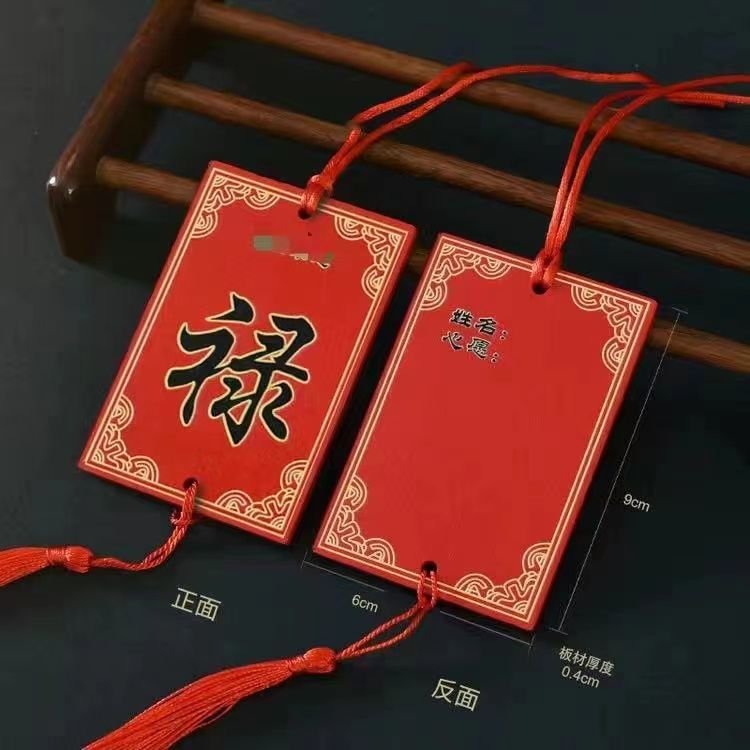 禄
姓名：
心愿：
9cm
6cm
正面
反面
板材厚度
0.4cm